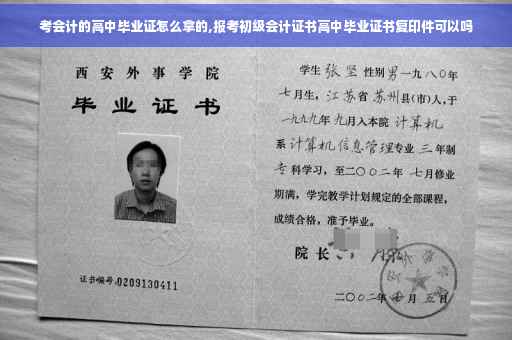 考会计的高中毕业证怎么拿的,报考初级会计证书高中毕业证书复印件可以吗
西安外事学院
毕业证书
证书编号:0209130411
学生 张坚 性别 男 一九八〇年
七月生, 江苏省 苏州 县(市)人,于
一九九九年 九月入本院 计算机
系 计算机信息管理专业 三 年制
专科学习,至二〇〇二年 七月修业
期满,学完教学计划规定的全部课程,
成绩合格,准予毕业。
院长
二〇〇二年 月 五日